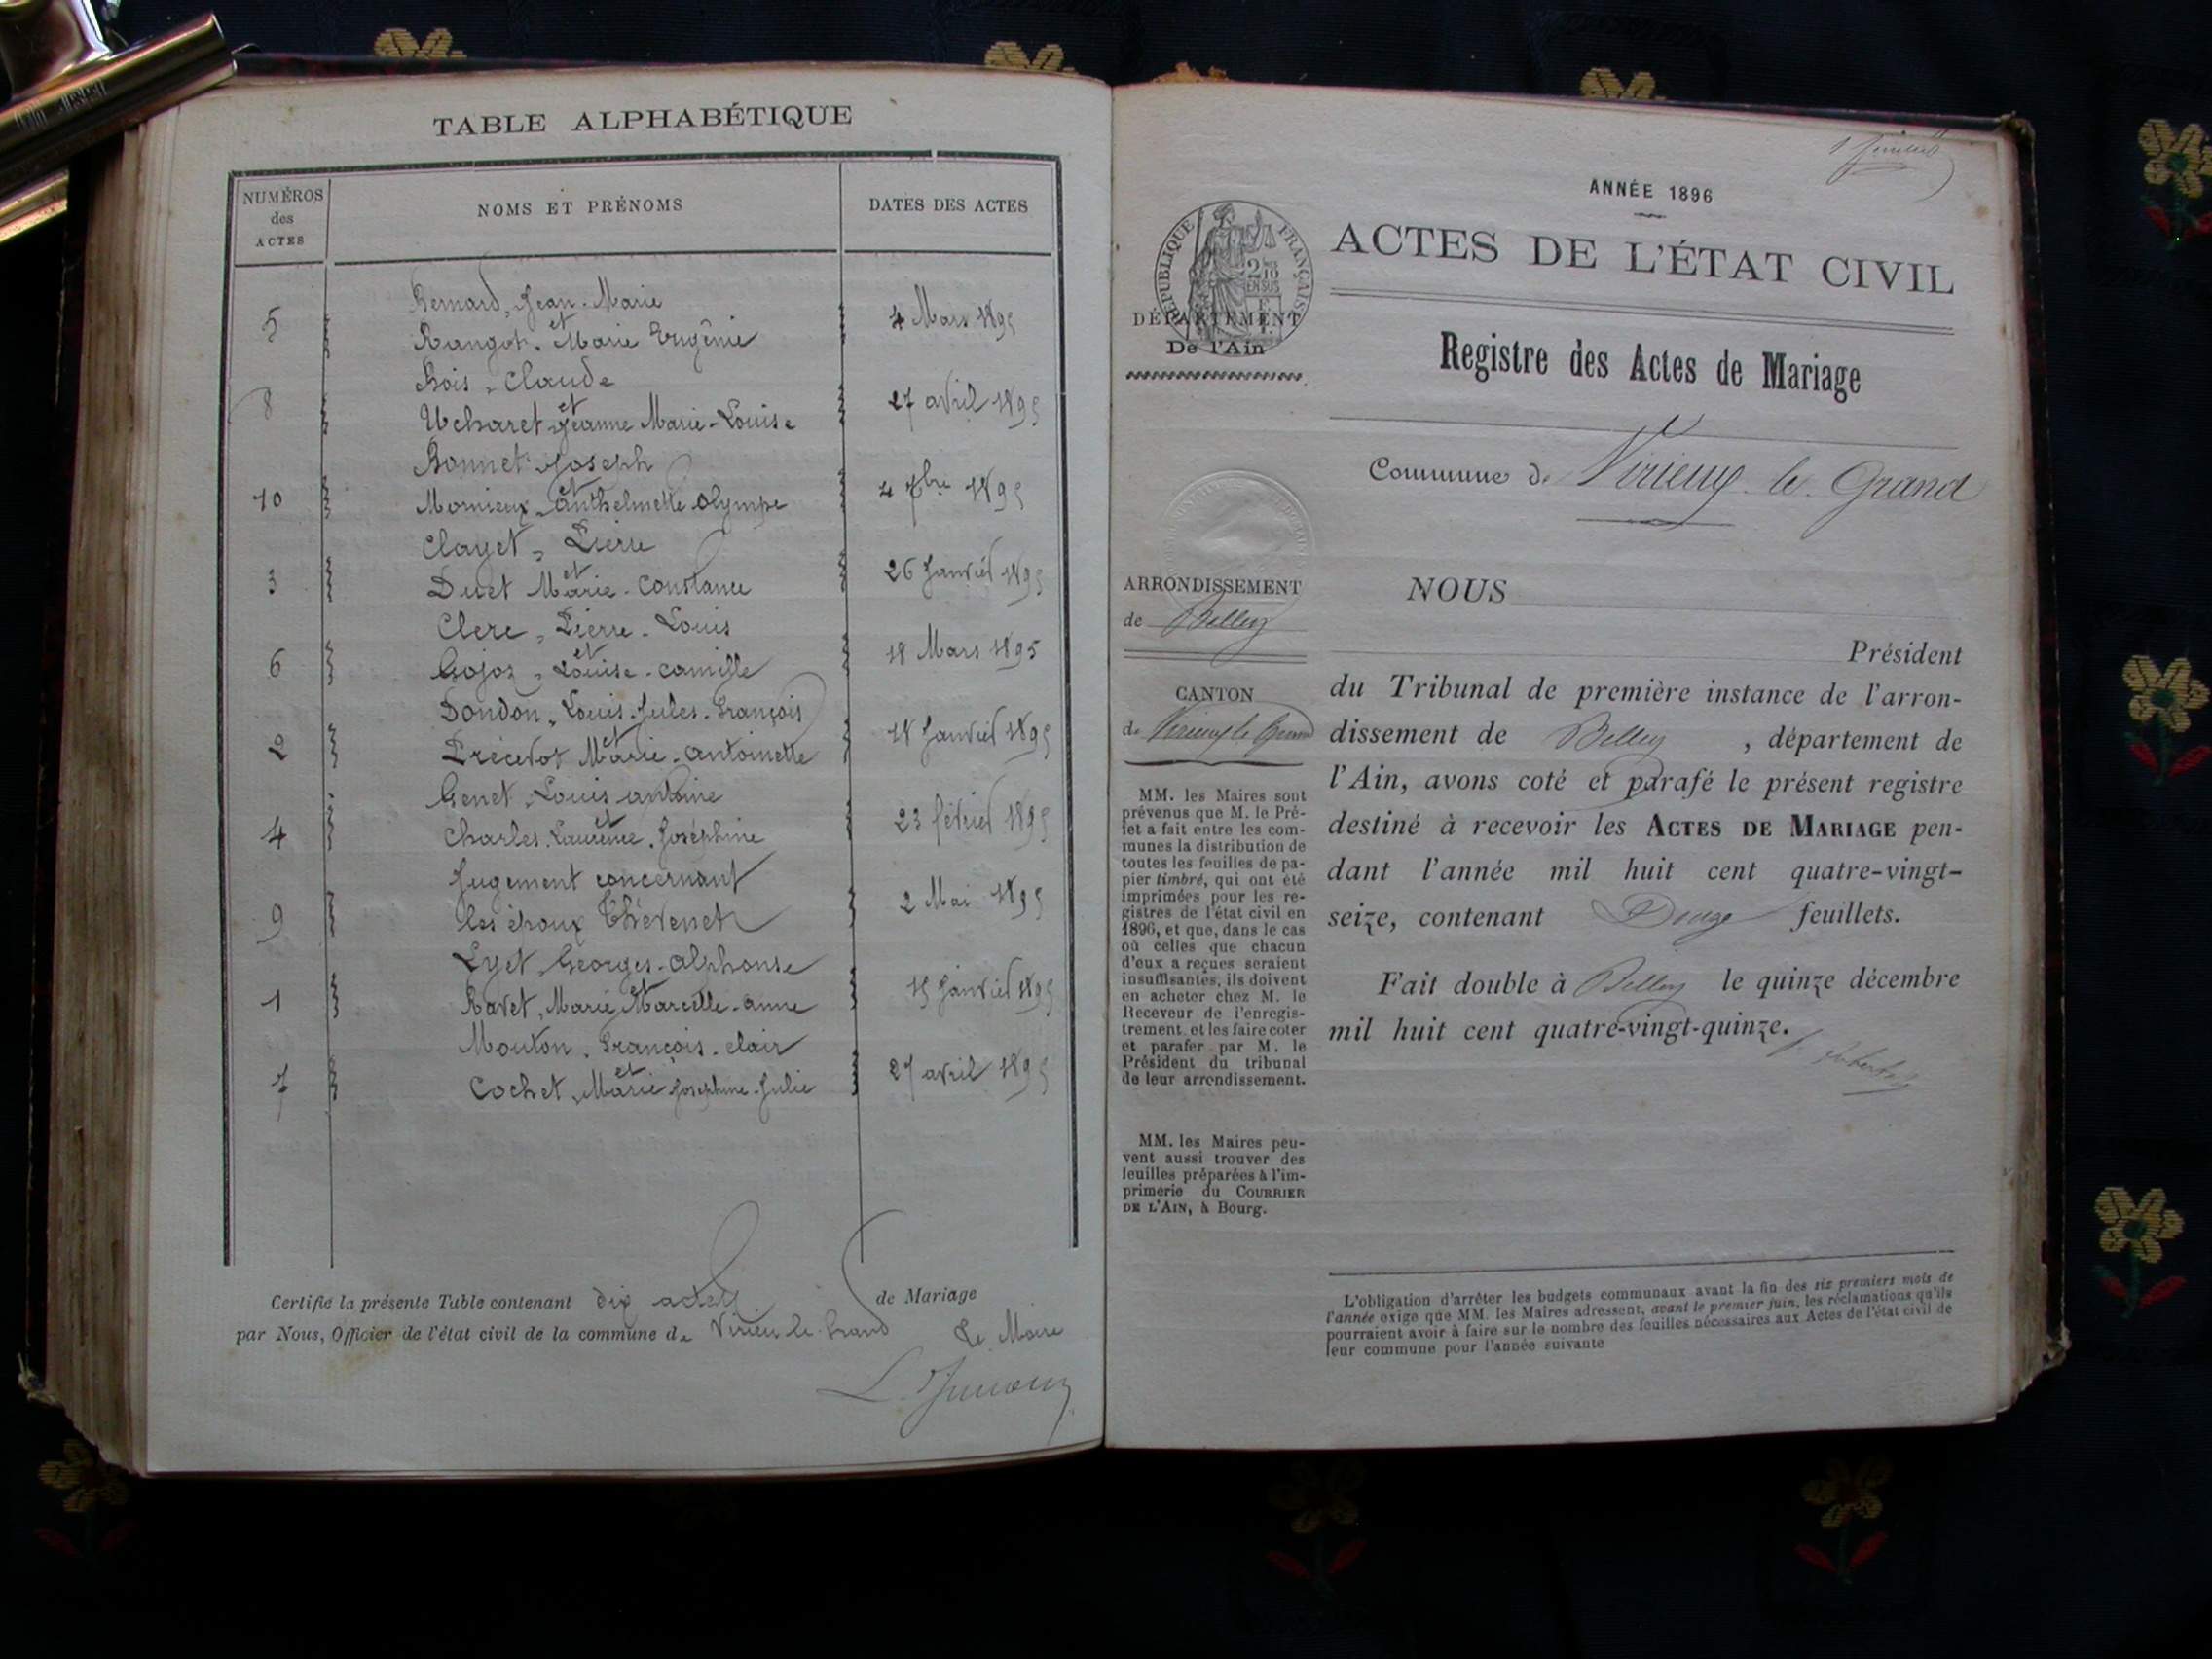 TABLE ALPHABÉTIQUE
NUMÉROS
des
ACTES
NOMS ET PRÉNOMS
DATES DES ACTES
Bernard, Jean-Marie
5 et 4 Mars 1895
Rangot, Marie Eugénie
Bois, Claude
8 et 27 avril 1895
Ucharet Jeanne Marie-Louise
Bonnet Joseph
10 et 4 7bre 1895
Mornieux, Anthelmette Olympe
Clayet, Pierre
3 et 26 Janvier 1895
Duet Marie-Constance
Clerc, Pierre-Louis
6 et 18 Mars 1895
Gojoz, Louise-Camille
Dondon, Louis-Jules-François
2 et 18 Janvier 1895
Marie-Antoinette
Genet, Louis Antoine
4 et 23 février 1895
Charles, Laurence, Joséphine
Jugement concernant
9 2 Mai 1895
les époux Thévenet
Lyet, Georges-Alphonse
1 et 15 Janvier 1895
Ravet, Marie Marcelle-Anne
Mouton, François-Clair
7 et 27 avril 1895
Cochet, Marie Joséphine-Julie
Certifié la présente Table contenant dix actes de Mariage
par Nous, Officier de l'état civil de la commune de Virieu le Grand Le Maire
ANNÉE 1896
ACTES DE L'ÉTAT CIVIL
RÉPUBLIQUE FRANÇAISE
DÉPARTEMENT
De l'Ain
Registre des Actes de Mariage
Commune de Virieu le Grand
ARRONDISSEMENT
de Belley
CANTON
de Virieu le Grand
MM. les Maires sont
prévenus que M. le Pré-
fet a fait entre les com-
munes la distribution de
toutes les feuilles de pa-
pier timbré, qui ont été
imprimées pour les re-
gistres de l'état civil en
1896, et que, dans le cas
où celles que chacun
d'eux a reçues seraient
insuffisantes, ils doivent
en acheter chez M. le
Receveur de l'enregis-
trement et les faire coter
et parafer par M. le
Président du tribunal
de leur arrondissement.
MM. les Maires peu-
vent aussi trouver des
feuilles préparées à l'im-
primerie du COURRIER
DE L'AIN, à Bourg.
NOUS
Président
du Tribunal de première instance de l'arron-
dissement de Belley, département de
l'Ain, avons coté et parafé le présent registre
destiné à recevoir les ACTES DE MARIAGE pen-
dant l'année mil huit cent quatre-vingt-
seize, contenant Douze feuillets.
Fait double à Belley le quinze décembre
mil huit cent quatre-vingt-quinze.
L'obligation d'arrêter les budgets communaux avant la fin des six premiers mois de
l'année exige que MM. les Maires adressent, avant le premier juin, les réclamations qu'ils
pourraient avoir à faire sur le nombre des feuilles nécessaires aux Actes de l'état civil de
leur commune pour l'année suivante